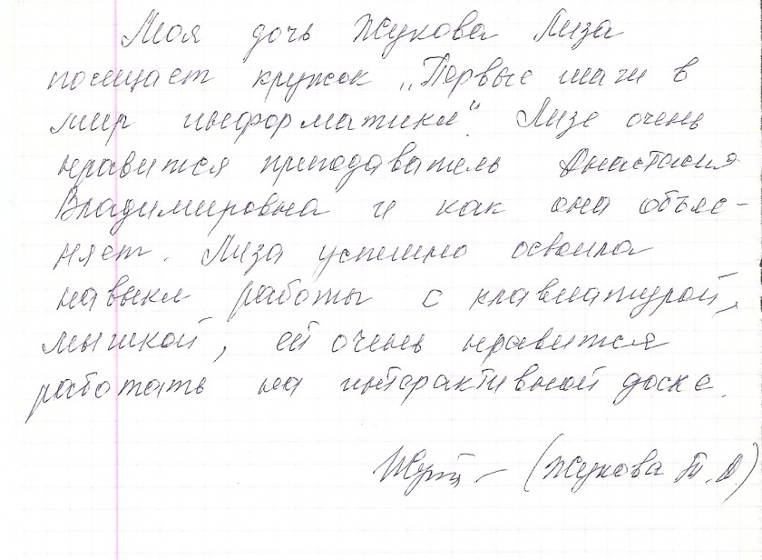 Моя дочь Жукова Лиза
посещает кружок „Первые шаги в
мир информатики". Лизе очень
нравится преподаватель Анастасия
Владимировна и как она объяс-
няет. Лиза успешно освоила
навыки работы с клавиатурой,
мышкой, ей очень нравится
работать на интерактивной доске.
(Жукова Т. А.)